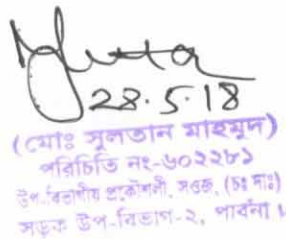 28.5.18
(মোঃ সুলতান মাহমুদ)
পরিচিতি নং-৬০২২৮১
উপ-বিভাগীয় প্রকৌশলী, সওজ, (চঃ দাঃ)
সড়ক উপ-বিভাগ-২, পাবনা।